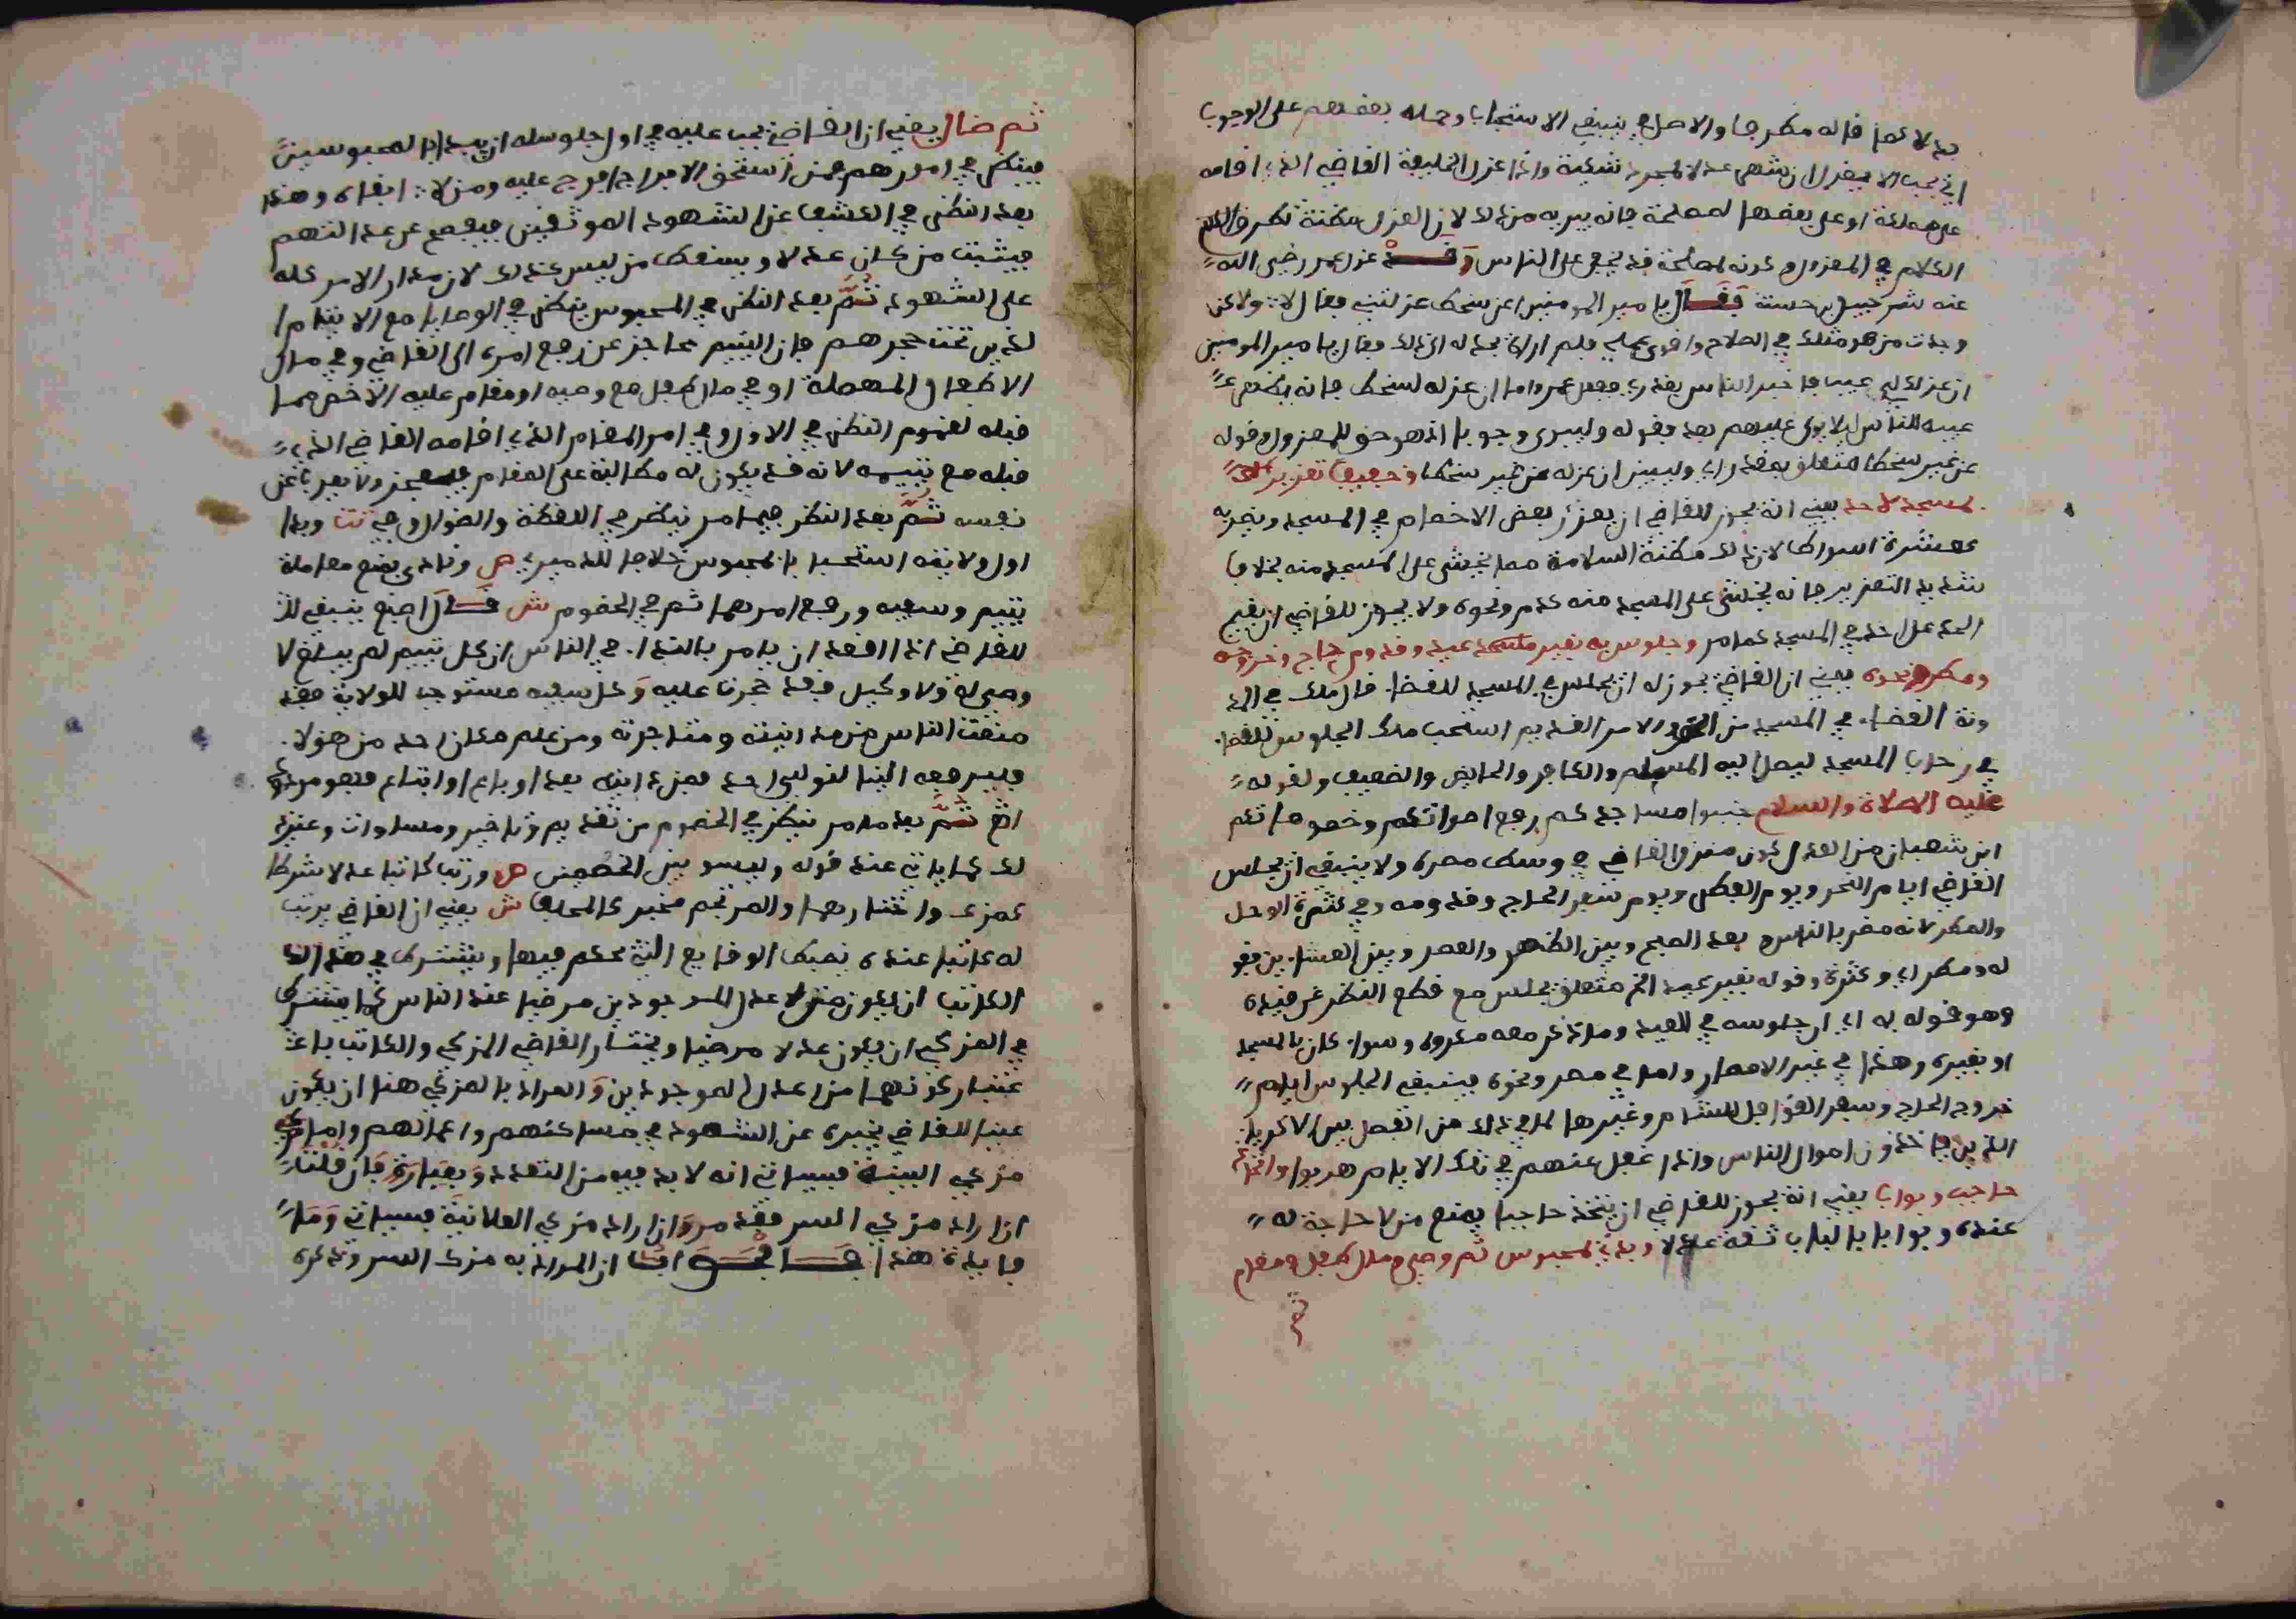 عدلا كما قاله مطرف والاصل في ينبغي الاستحباب وحمله بعضهم على الوجوب
اي يجب الا يعزل ان شهر عدلا بمجرد شكية واذا عزل الخليفة القاضي الذي اقامه
على سخطة او على بعضها لمصلحة فانه يبريه من ذلك لان العزل مظنة تطرق السن
الكلام في المعزول وكونه لمصلحة قد يخفى على الناس وقد عزل عمر رضي الله
عنه شرحبيل بن حسنة فقال يا امير المومنين اعن سخط عزلتني فقال لا ولاكن
وجدت من هو مثلك في الصلاح واقوى على عملي فلم ار يحل له الا ذلك فقال يا امير المومنين
ان عزلك لي عيب فاخبر الناس بعذري ففعل عمر واما ان عزله لسخط فانه يظهر
عيبه للناس ليلا يولى عليهم بعد وقوله وليبرئ وجوبا اذ هو حق للمعزول وقوله
عن غير سخط متعلق بمقدر اي وليبين ان عزله عن غير سخط وخفيف تعزير
بمسجد لا حد يعني انه يجوز للقاضي ان يعزر بعض الاخصام في المسجد ويضربه
كعشرة اسواط لان ذلك مظنة السلامة مما يخشى على المسجد منه بخلاف
شديد التعزير فانه يخشى على المسجد منه كدم ونحوه ولا يجوز للقاضي ان يقيم
الحد على احد في المسجد كما مر وجلوس به بغير عيد وقدوم حاج وخروجه
ومطر ونحوه يعني ان القاضي يجوز له ان يجلس في المسجد للقضا قال ملك في المد
ونة القضا في المسجد من الحق والامر القديم استحب ملك الجلوس للقضا
في رحاب المسجد ليصل اليه المسلم والكافر والحايض والضعيف ولقوله
عليه الصلاة والسلام جنبوا مساجدكم رفع اصواتكم وخصوماتكم
ابن شعبان من العدل كون منزل القاضي في وسط مصره ولا ينبغي ان يجلس
القاضي ايام النحر ويوم الفطر ويوم سفر الحاج وقدومه وفي كثرة الوحل
والمطر لانه مضر بالناس وبعد الصبح وبين الظهر والعصر وبين العشاين فقو
له ومطر اي وكثرة وقوله بغير عيد الخ متعلق بجلس مع قطع النظر عن قيده
وهو قوله به اي ان جلوسه في العيد وما ذكر معه مكروه وسوا كان بالمسجد
او بغيره وهذا في غير الامصار واما في مصر ونحوه فينبغي الجلوس ايام
خروج الحاج وسفر القوافل للشام وغيرها لما في ذلك من الفصل بين الاكريا
الذين ياخذون اموال الناس واذا غفل عنهم في تلك الايام هربوا واتخاذ
حاجب وبواب يعني انه يجوز للقاضي ان يتخذ حاجبا يمنع من لا حاجة له
عنده وبوابا بالباب ثقة عدلا وبدا بمحبوس ثم وصي ومال طفل ومقام
ثم
ثم ضال يعني ان القاضي يجب عليه في اول جلوسه ان يبدا بالمحبوسين
فينظر في امورهم فمن استحق الافراج افرج عليه ومن لا ابقاه وهذا
بعد النظر في الكشف عن الشهود الموثقين فيفحص عن عدالتهم
فيثبت من كان عدلا ويسقط من ليس كذلك لان مدار الامر كله
على الشهود ثم بعد النظر في المحبوس ينظر في الوصايا مع الايتام ا
لذين تحت حجرهم فان اليتيم عاجز عن رفع امره الى القاضي وفي مال
الاطفال المهملة او في مال طفل مع وصيه او مقام عليه الاخص مما
قبله لعموم النظر في الاول وفي امر المقام الذي اقامه القاضي الذي
قبله مع يتيمه لانه قد يكون له مطالبة على المقام فيعجز ولا يعرب عن
نفسه ثم بعد النظر فيما مر ينظر في اللقطة والضوال وفي تتا وبدا
اول ولايته استحسبا بالمحبوس خلافا للدميري ص ونادى بمنع معاملة
يتيم وسفيه ورفع امرهما ثم في الخصوم ش قال اصبغ ينبغي للذ
للقاضي اذا اقعد ان يامر بالندا في الناس ان كل يتيم لم يبلغ لا
وصي له ولا وكيل فقد حجرت عليه وكل سفيه مستوجب للولاية فقد
منعت الناس من مداينته ومتاجرته ومن علم مكان احد من هولا
فليرفعه الينا لنولي احد فمن داينه بعد او باع او ابتاع فهو مردود
اتم ثم بعد ما مر ينظر في الخصوم من تقديم وتاخير ومساوات وغيره
لك كما ياتي عند قوله وليسو بين الخصمين ص ورتب كاتبا عدلا شرطا
كمزك واختارهما والمترجم مخبر كالمحلف ش يعني ان القاضي يرتب
له كاتبا عنده يضبط الوقايع التي يحكم فيها ويشترط في هذا
الكاتب ان يكون من اعدل الموجودين مرضيا عند الناس كما يشترط
في المزكي ان يكون عدلا مرضيا ويختار القاضي المزكي والكاتب باعت
عتبار كونهما من اعدل الموجودين والمراد بالمزكي هنا ان يكون
عينا للقاضي يخبره عن الشهود في مساكنهم واعمالهم واما
مزكي البينة فسياتي انه لا بد فيه من التعدد وبعبارة فان قلت
اذا اراد مزكي السر فقد مر وان اراد مزكي العلانية فسياتي وما
فايدة هذا فالجواب ان المراد به مزك السر وذكره